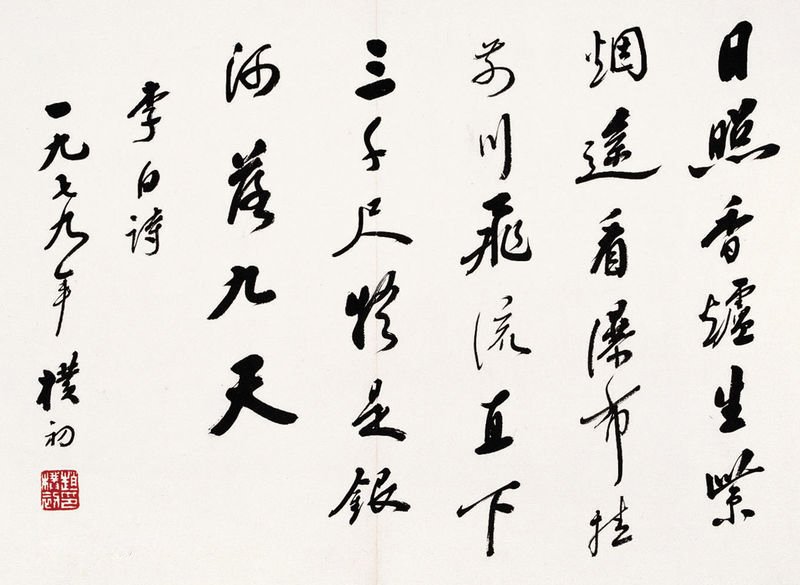 日照香爐生紫
烟遙看瀑布挂
前川飛流直下
三千尺疑是銀
河落九天
李白詩
一九七九年 樸初
趙印樸初